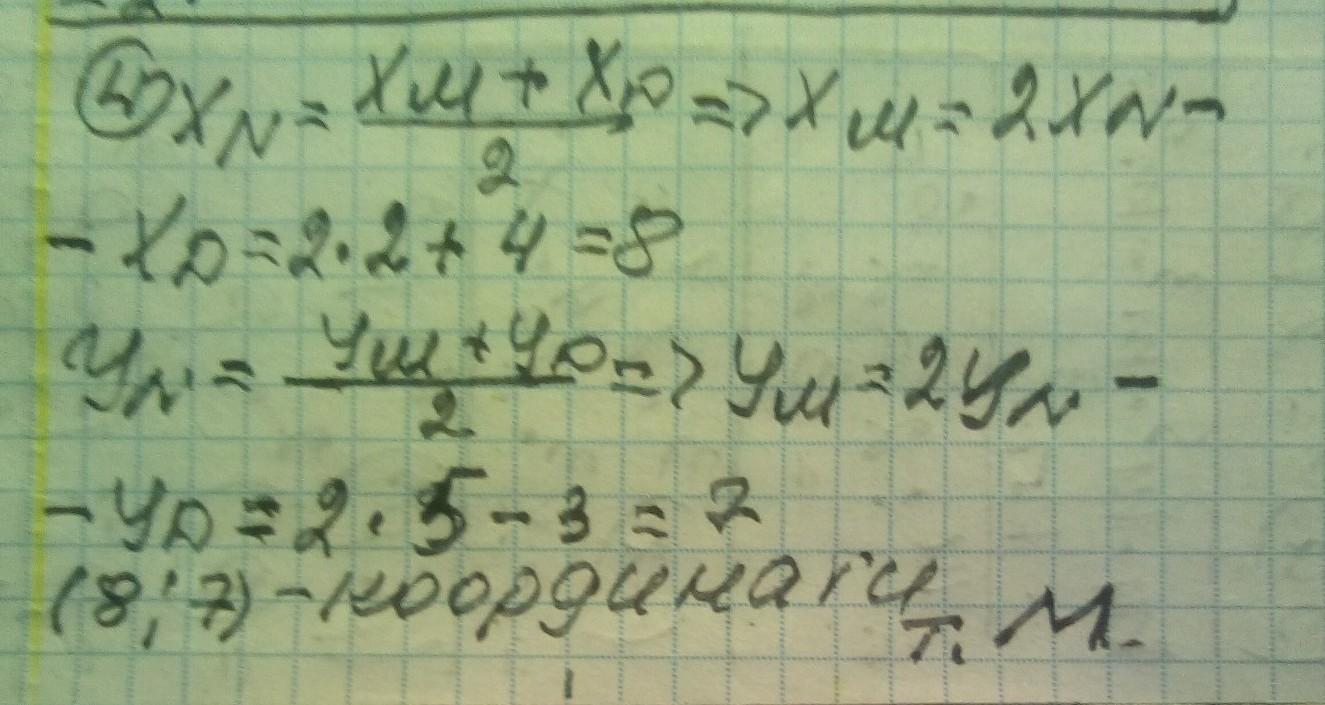 ④ X_N = (X_M + X_D)/2 => X_M = 2X_N -
- X_D = 2·2 + 4 = 8
y_N = (y_M + y_D)/2 => y_M = 2y_N -
- y_D = 2·5 - 3 = 7
(8; 7) - координати т. M.